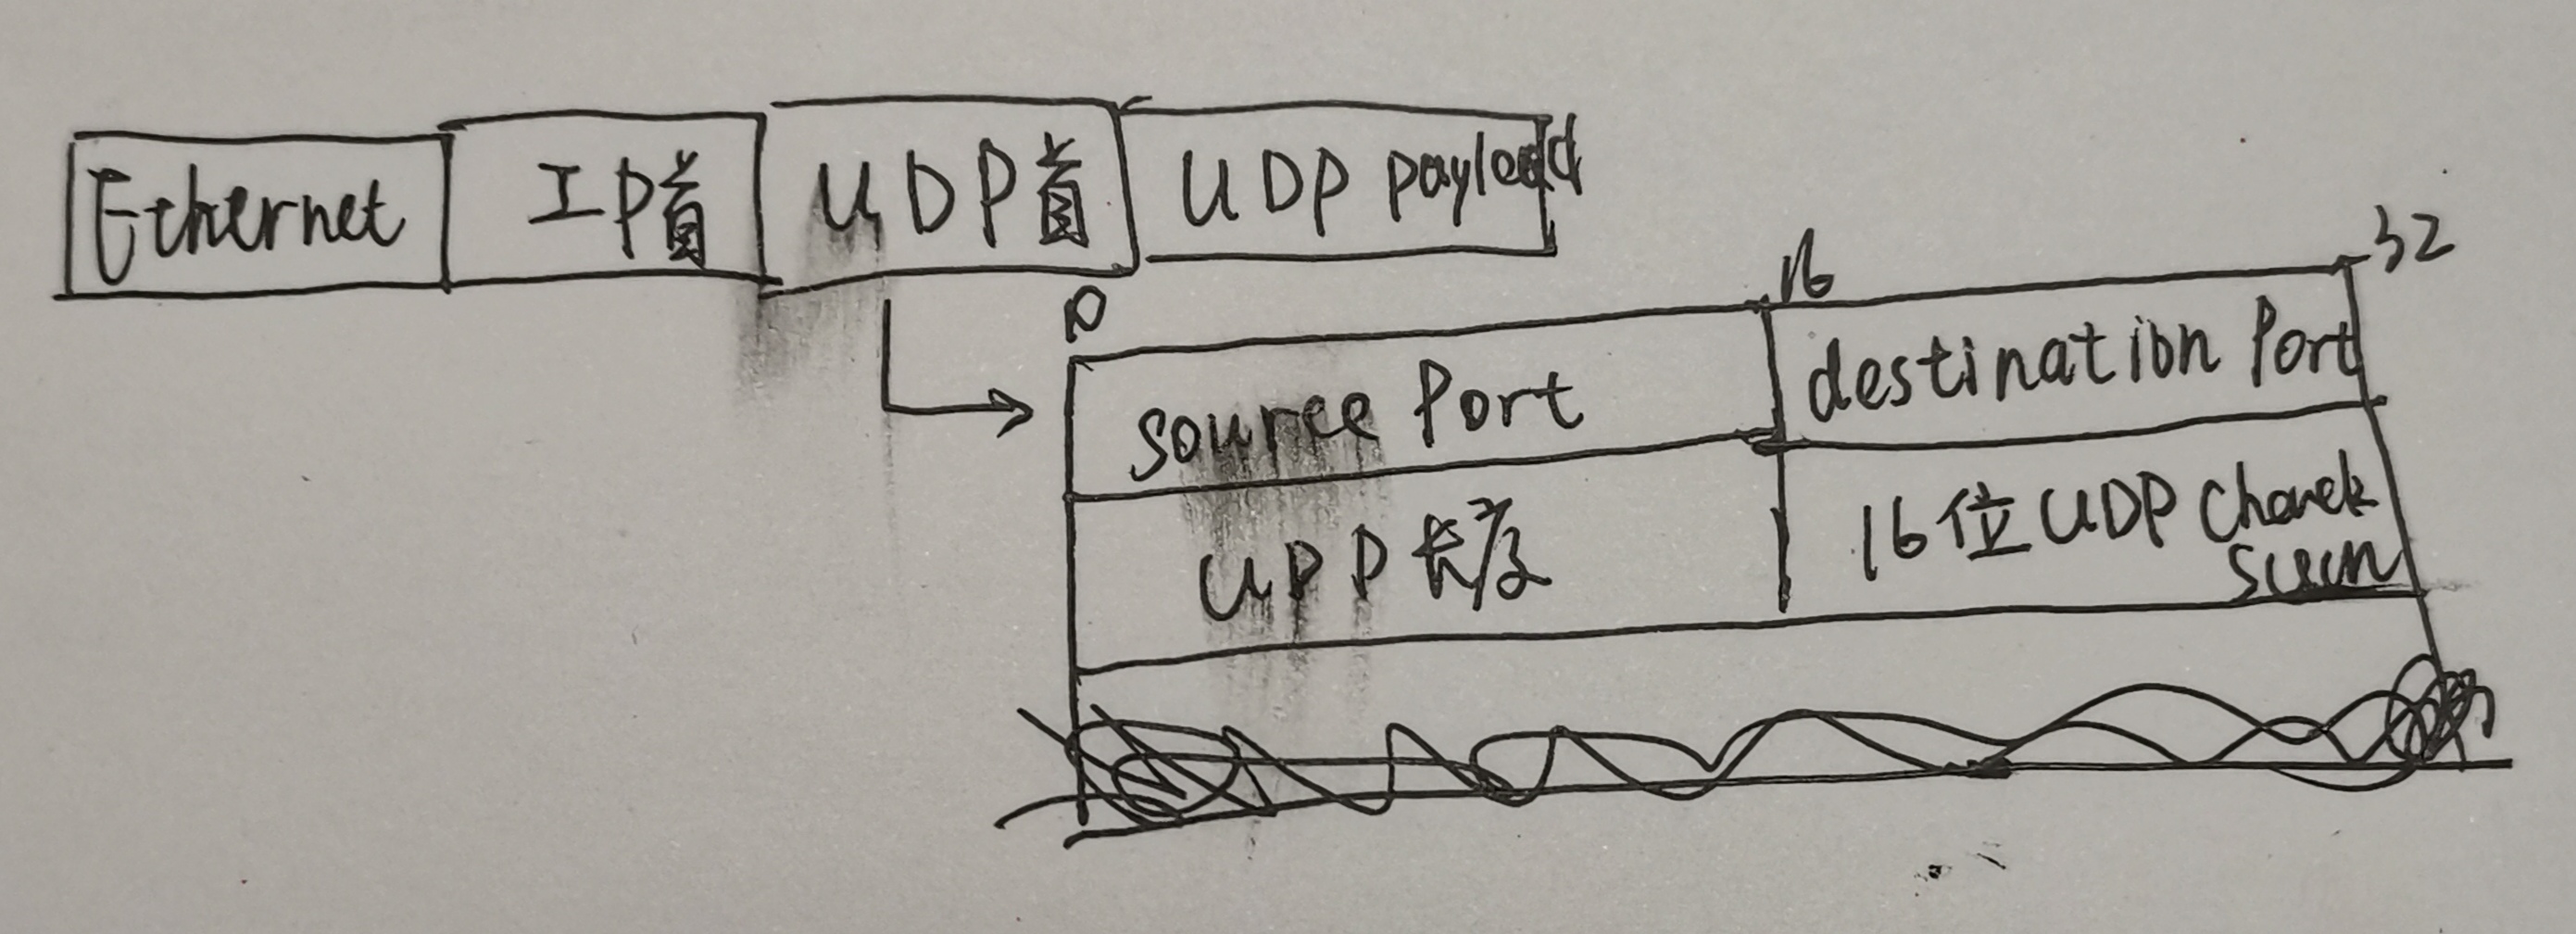 Ethernet IP首 UDP首 UDP payload
0 16 32
source Port destination Port
UDP 长度 16位 UDP Check
sum